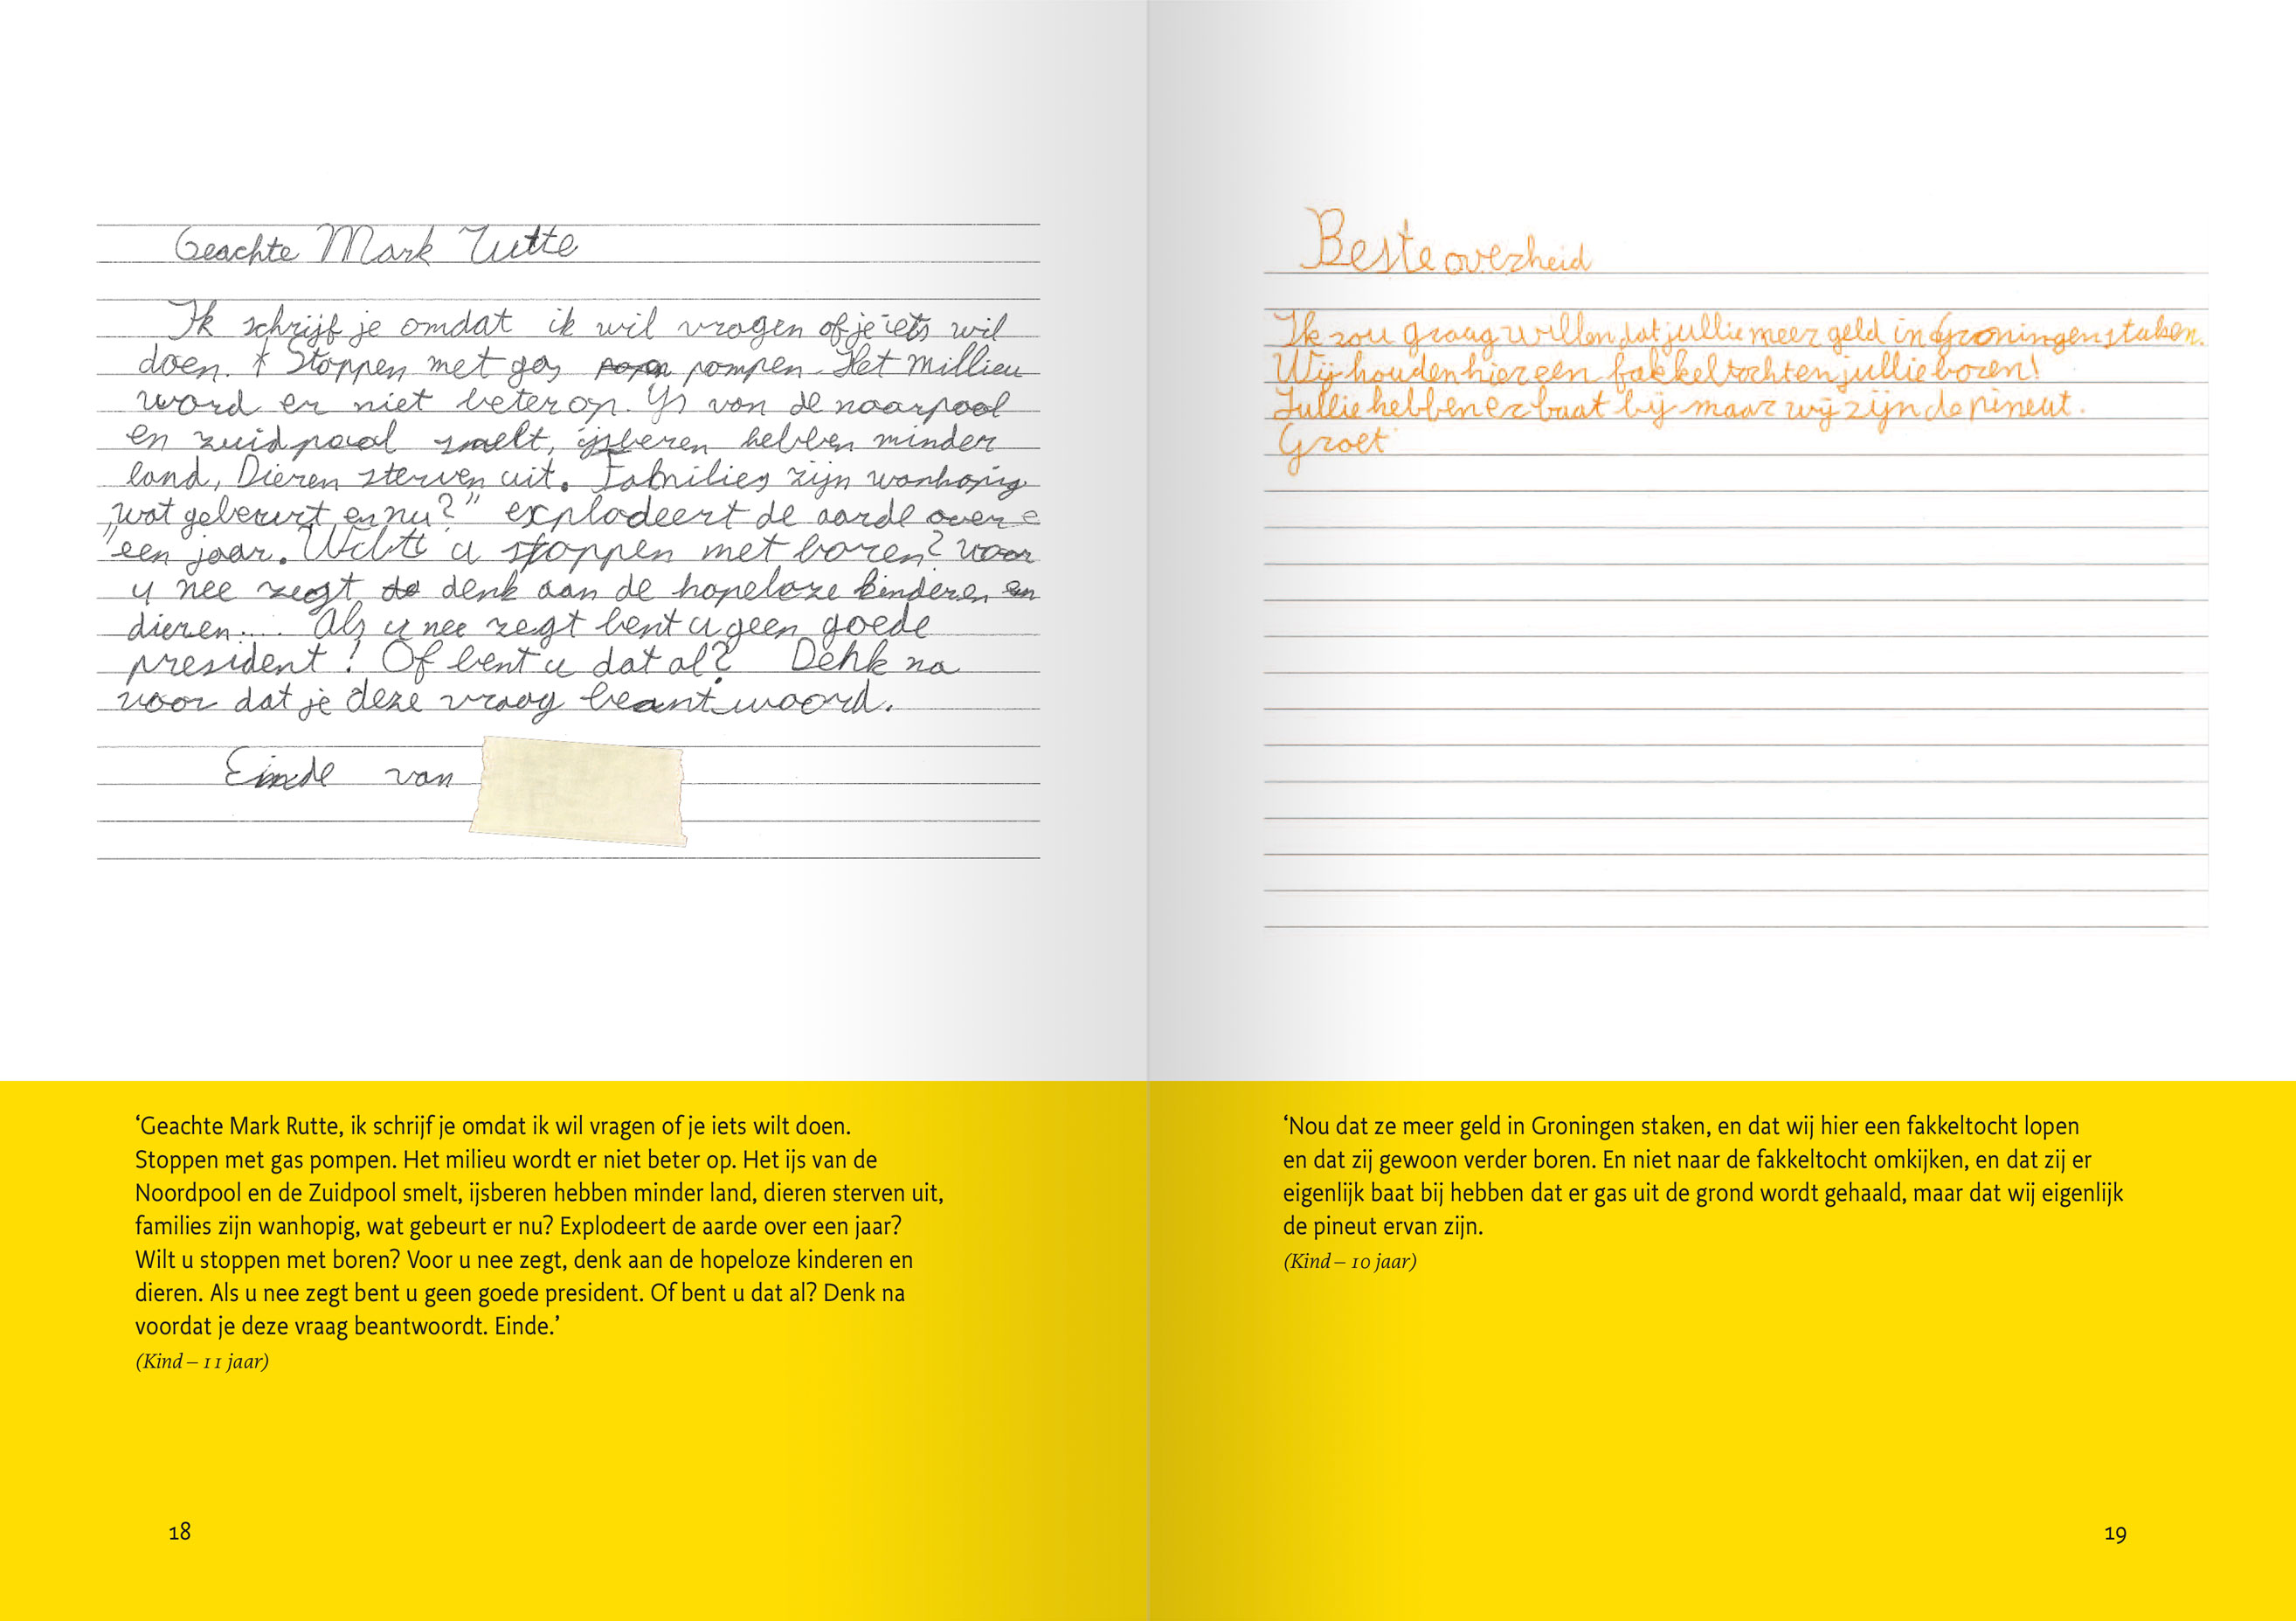 Geachte Mark Rutte
Ik schrijf je omdat ik wil vragen of je iets wil
doen. * Stoppen met gas pompen. Het millieu
word er niet beter op. Ys van de noarpool
en zuidpool smelt, ijsberen hebben minder
land, Dieren sterven uit. Families zijn wanhopig
„wat gebeurt er nu?” explodeert de aarde over e
een jaar. Wilt u stoppen met boren? voor
u nee zegt de denk aan de hopeloze kinderen en
dieren... Als u nee zegt bent u geen goede
president! Of bent u dat al? Denk na
voor dat je deze vraag beantwoord.
Einde van
‘Geachte Mark Rutte, ik schrijf je omdat ik wil vragen of je iets wilt doen.
Stoppen met gas pompen. Het milieu wordt er niet beter op. Het ijs van de
Noordpool en de Zuidpool smelt, ijsberen hebben minder land, dieren sterven uit,
families zijn wanhopig, wat gebeurt er nu? Explodeert de aarde over een jaar?
Wilt u stoppen met boren? Voor u nee zegt, denk aan de hopeloze kinderen en
dieren. Als u nee zegt bent u geen goede president. Of bent u dat al? Denk na
voordat je deze vraag beantwoordt. Einde.’
(Kind – 11 jaar)
18
Beste overheid
Ik zou graag willen dat jullie meer geld in Groningen staken.
Wij houden hier een fakkeltocht en jullie boren!
Jullie hebben er baat bij maar wij zijn de pineut.
Groet
‘Nou dat ze meer geld in Groningen staken, en dat wij hier een fakkeltocht lopen
en dat zij gewoon verder boren. En niet naar de fakkeltocht omkijken, en dat zij er
eigenlijk baat bij hebben dat er gas uit de grond wordt gehaald, maar dat wij eigenlijk
de pineut ervan zijn.
(Kind – 10 jaar)
19